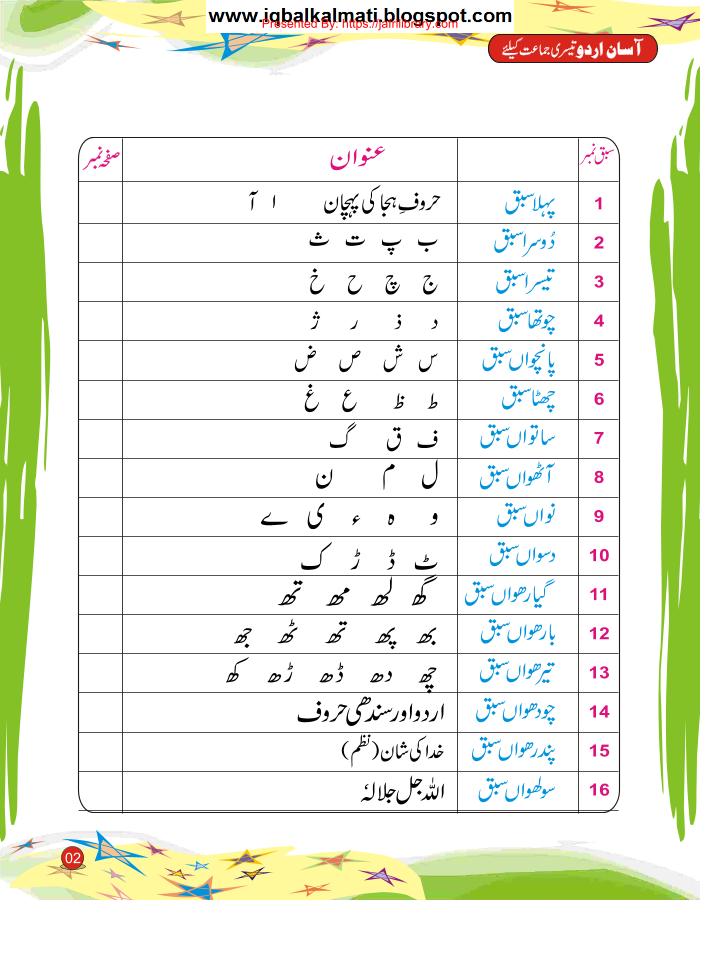 www.iqbalkalmati.blogspot.com
Presented By: https://jamlibrary.com
آسان اردو تیسری جماعت کیلئے
سبق نمبر عنوان صفحہ نمبر
1 پہلا سبق حروفِ ہجا کی پہچان ا آ
2 دُوسرا سبق ب پ ت ث
3 تیسرا سبق ج چ ح خ
4 چوتھا سبق د ذ ر ژ
5 پانچواں سبق س ش ص ض
6 چھٹا سبق ط ظ ع غ
7 ساتواں سبق ف ق گ
8 آٹھواں سبق ل م ن
9 نواں سبق و ہ ء ی ے
10 دسواں سبق ٹ ڈ ڑ ک
11 گیارھواں سبق گھ لھ مھ تھ
12 بارھواں سبق بھ پھ تھ ٹھ جھ
13 تیرھواں سبق چھ دھ ڈھ ڑھ کھ
14 چودھواں سبق اردو اور سندھی حروف
15 پندرھواں سبق خدا کی شان (نظم)
16 سولھواں سبق اللہ جل جلالہٗ
02